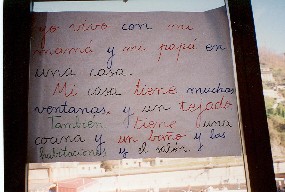 yo vivo con mi
mamá y mi papá en
una casa.
Mi casa tiene muchas
ventanas, y un tejado
También tiene una
cocina y un baño y las
habitaciones y el salón.